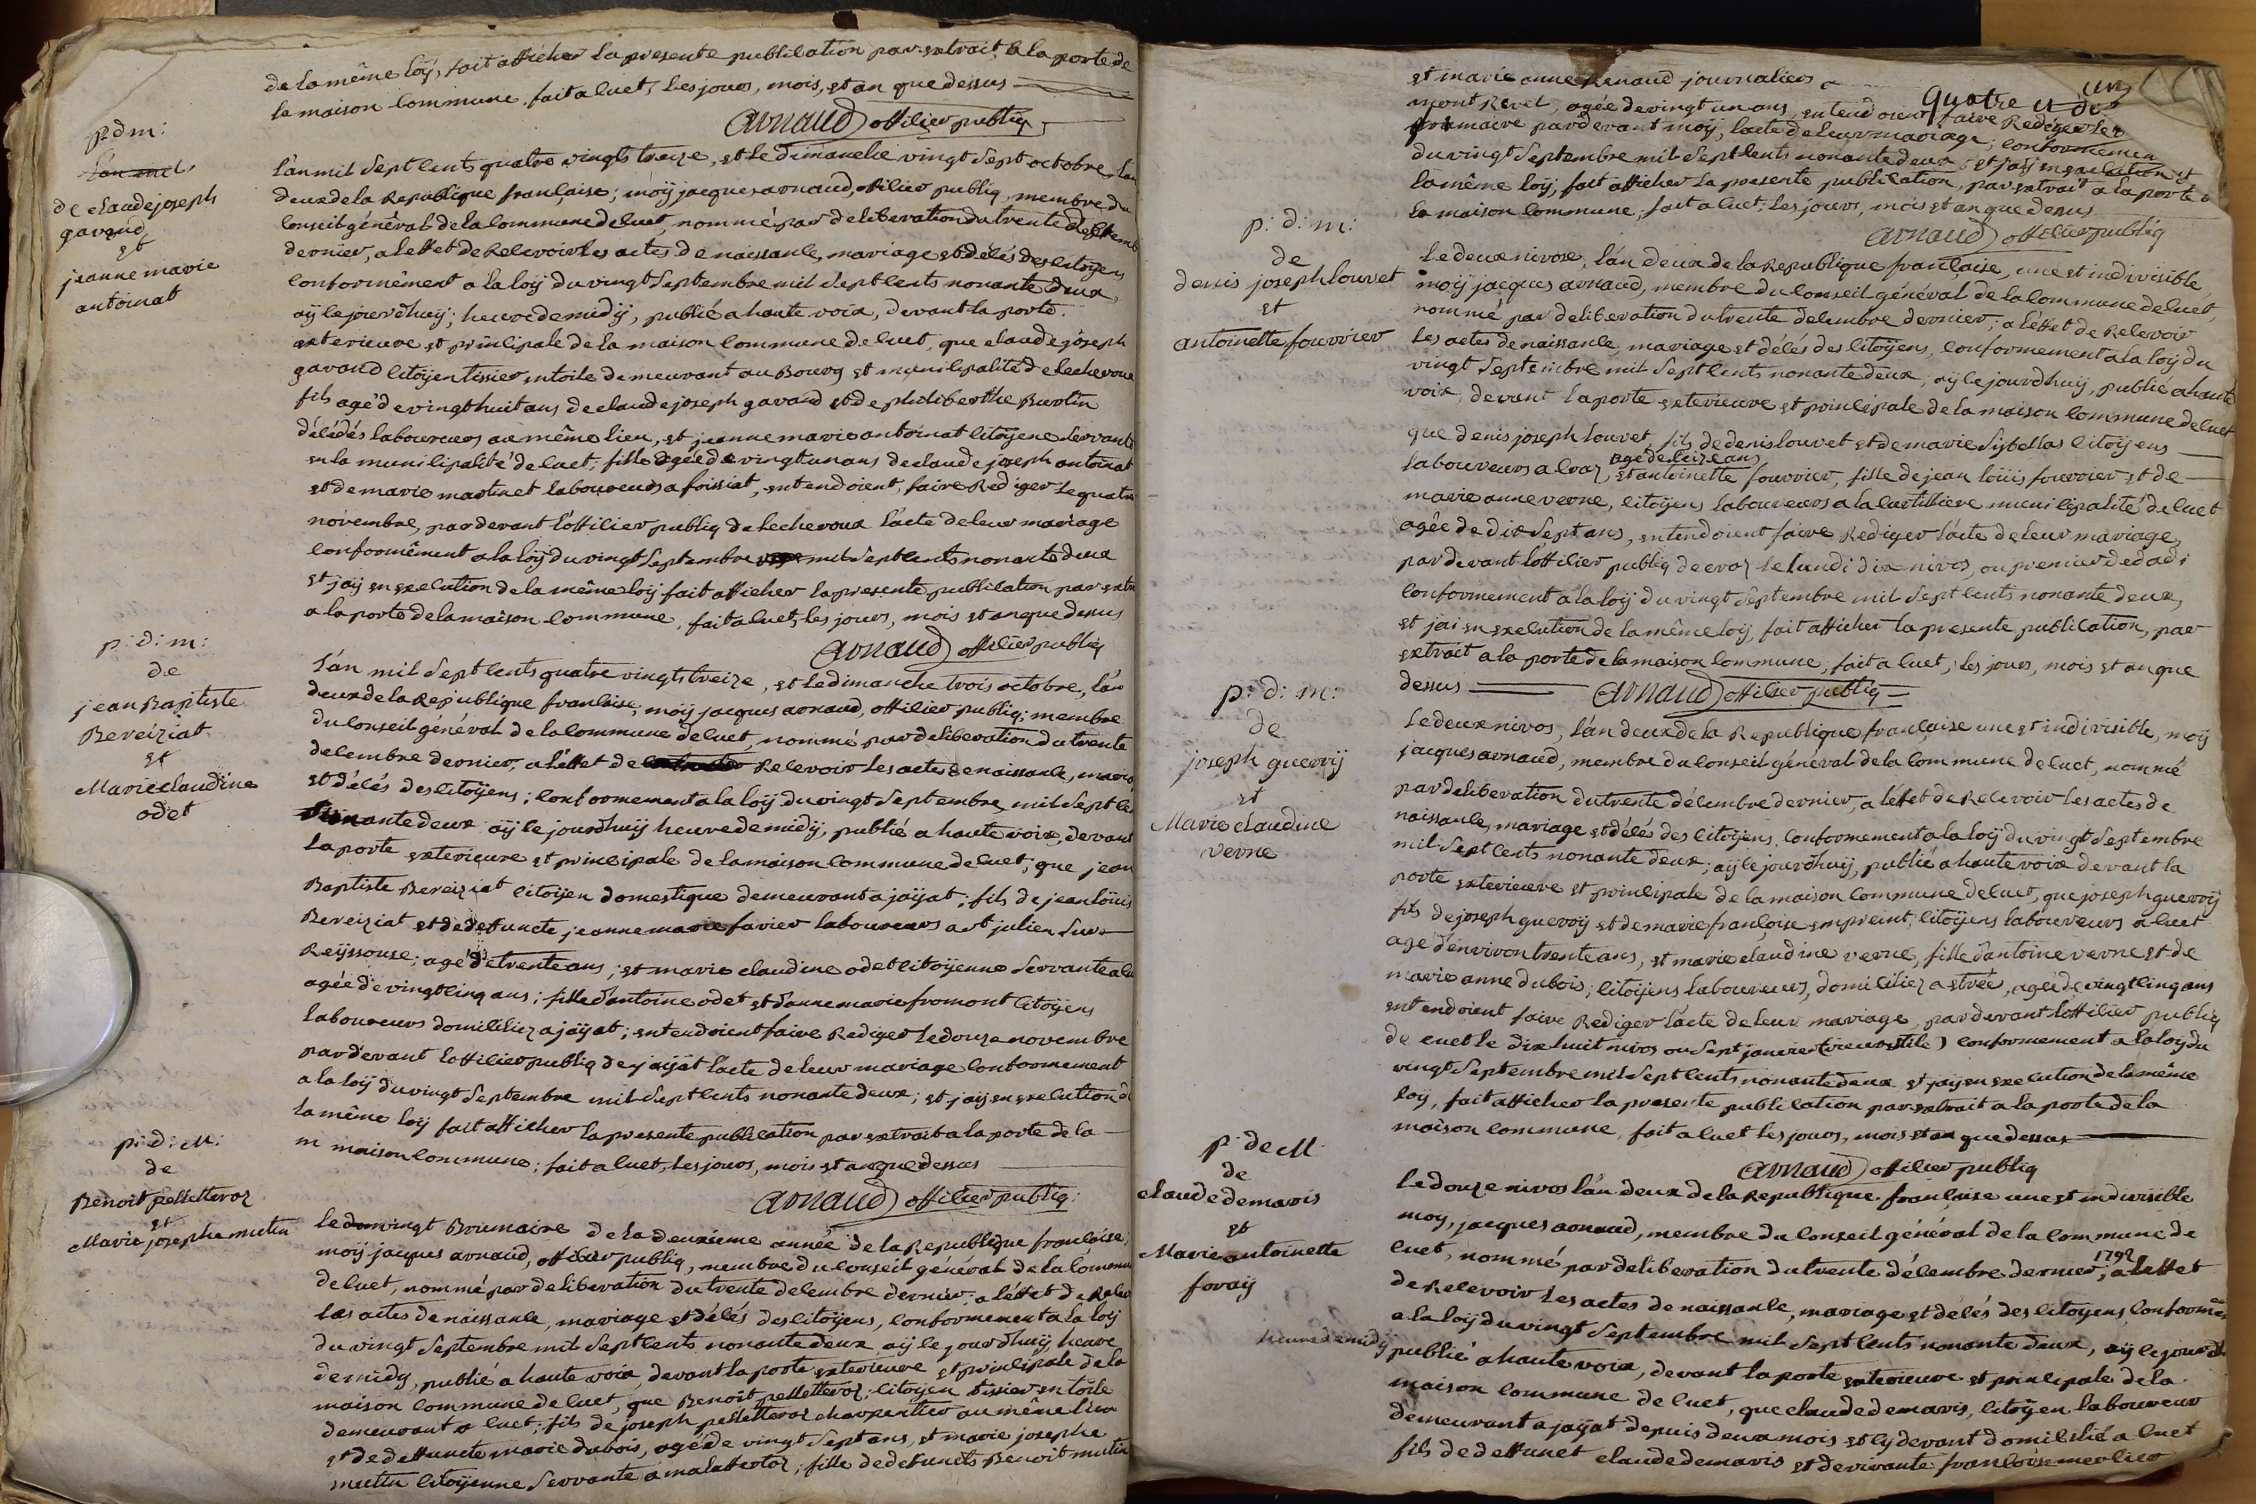 de la même loÿ, fait afficher la presente publication par extrait a la porte de
la maison commune. fait a cuet, les jours, mois, et an que dessus
arnaud officier publiq
p: d m:
de claude joseph
gavaud
et
jeanne marie
antoinat
l'an mil sept cents quatre vingts treize, et le dimanche vingt sept octobre, l'an
deux de la Republique française; moÿ jacques arnaud, officier publiq, membre du
conseil général de la commune de cuet, nommé par deliberation du trente decemb
dernier, a l'effet de Recevoir les actes de naissance, mariage et décés des citoÿens
conformément a la loÿ du vingt septembre mil sept cents nonante deux,
aÿ le jourd'huÿ; heure de midÿ, publié a haute voix, devant la porte
exterieure et principale de la maison commune de cuet, que claude joseph
gavaud citoÿen tissier en toile demeurant au Bourg et municipalité de lecheroux
fils agé de vingt huit ans de claude joseph gavaud et de philiberthe Burtin
décédés laboureurs au même lieu, et jeanne marie antoinat citoÿene servante
en la municipalité de cuet, fille agée de vingt un ans de claude joseph antoinat
et de marie martinet laboureurs a foissiat, entendoient, faire Rediger le quatre
novembre, par devant l'officier publiq de lecheroux l'acte de leur mariage
conformément a la loÿ du vingt septembre mil sept cents nonante deux
et j'aÿ en execution de la même loÿ fait afficher la presente publication par extra
a la porte de la maison commune, fait a cuet, les jours, mois et an que dessus
arnaud officier publiq
p: d: m:
de
jean Baptiste
Bereiziat
et
Marie claudine
odet
l'an mil sept cents quatre vingts treize, et le dimanche trois octobre, l'an
deux de la Republique francaise, moÿ jacques arnaud, officier publiq; membre
du conseil général de la commune de cuet, nommé par deliberation du trente
decembre dernier, a l'effet de Recevoir les actes de naissance, mariag
et décés des citoÿens; conformement a la loÿ du vingt septembre mil sept ce
nonante deux aÿ le jourd'huÿ heure de midÿ, publié a haute voix, devant
la porte exterieure et principale de la maison commune de cuet; que jean
Baptiste Bereiziat citoÿen domestique demeurant a jaÿat; fils de jean loüis
Bereiziat et de defuncte jeanne marie favier laboureurs a st julien sur
Reÿssouze; agé de trente ans; et marie claudine odet citoÿenne servante a cu
agée de vingt cinq ans; fille d'antoine odet et d'anne marie fromont citoÿens
laboureurs domiciliez a jaÿat; entendoient faire Rediger le douze novembre
par devant l'officier publiq de jaÿat l'acte de leur mariage conformement
a la loÿ du vingt septembre mil sept cents nonante deux; et j'aÿ en execution d
la même loÿ fait afficher la presente publication par extrait a la porte de la
m maison commune; fait a cuet, les jours, mois et an que dessus
arnaud officier publiq:
p: d: M:
de
Benoit pelletteraz
et
Marie josephe mutin
le vingt Brumaire de la deuxieme année de la Republique françoise,
moÿ jacques arnaud, officier publiq, membre du conseil général de la commun
de cuet, nommé par deliberation du trente decembre dernier; a l'effet de Recev
les actes de naissance, mariage et décés des citoÿens, conformement a la loÿ
du vingt septembre mil sept cents nonante deux aÿ le jourd'huÿ heure
de midy, publié a haute voix, devant la porte exterieure et principale de la
maison commune de cuet, que Benoit pelletteraz, citoÿen tissier en toile
demeurant a cuet; fils de joseph pelletteraz charpentier au même lieu
et de deffuncte marie dubois, agé de vingt sept ans, et marie josephe
mutin citoÿenne servante a malafretaz; fille de defuncts Benoit mutin
quatre
et marie anne Renaud journaliers a
mont Revel, agée de vingt un ans, entendoient faire Rediger le
frimaire par devant moÿ, l'acte de leur mariage; conformemen
du vingt septembre mil sept cents nonante deux; et j'aÿ en execution d
la même loÿ; fait afficher la presente publication, par extrait a la porte d
la maison commune, fait a cuet, les jours, mois et an que dessus
arnaud officier publiq
p: d: m:
de
denis joseph louvet
et
antoinette fourrier
le deux nivose, l'an deux de la Republique française, une et indivisible
moÿ jacques arnaud, membre du conseil général de la commune de cuet,
nommé par deliberation du trente decembre dernier; a l'effet de Recevoir
les actes de naissance, mariage et décés des citoÿens, conformement a la loÿ du
vingt septembre mil sept cents nonante deux, aÿ le jourd'huÿ, publié a haute
voix, devant la porte exterieure et principale de la maison commune de cuet
que denis joseph louvet, fils de denis louvet et de marie sybellas citoÿens
agé de seize ans
laboureurs a craz, et antoinette fourrier, fille de jean loüis fourrier et de
marie anne verne, citoÿens laboureurs a la curtilliere municipalité de cuet
agée de dix sept ans, entendoient faire Rediger l'acte de leur mariage,
par devant l'officier publiq de craz le lundi dix nivos, ou premier decadi
conformement a la loÿ du vingt septembre mil sept cents nonante deux,
et j'ai en execution de la même loÿ, fait afficher la presente publication, par
extrait a la porte de la maison commune, fait a cuet, les jours, mois et an que
dessus arnaud officier publiq
p: d: m:
de
joseph guerrÿ
et
Marie claudine
verne
le deux nivos, l'an deux de la Republique française une et indivisible, moÿ
jacques arnaud, membre du conseil général de la commune de cuet, nommé
par deliberation du trente décembre dernier, a l'effet de Recevoir les actes de
naissance, mariage et décés des citoÿens, conformement a la loÿ du vingt septembre
mil sept cents nonante deux; aÿ le jourd'huÿ, publié a haute voix devant la
porte exterieure et principale de la maison commune de cuet, que joseph guerrÿ
fils de joseph guerrÿ et de marie françoise empreint, citoÿens laboureurs a cuet
agé d'environ trente ans, et marie claudine verne, fille d'antoine verne et de
marie anne dubois, citoÿens laboureurs, domiciliez a etrés, agée de vingt cinq ans
entendoient faire Rediger l'acte de leur mariage, par devant l'officier publiq
de cuet le dix huit nivos ou sept janvier (vieux stile) conformement a la loÿ du
vingt septembre mil sept cents nonante deux et j'aÿ en execution de la même
loÿ, fait afficher la presente publication par extrait a la porte de la
maison commune, fait a cuet les jours, mois et an que dessus
arnaud officier publiq
p: de M:
de
claude demaris
et
Marie antoinette
foraÿ
le douze nivos l'an deux de la Republique française une et indivisible
moy, jacques arnaud, membre du conseil général de la commune de
1792
cuet, nommé par deliberation du trente décembre dernier, a l'effet
de Recevoir les actes de naissance, mariage et décés des citoyens, conformém
a la loÿ du vingt septembre mil sept cents nonante deux, aÿ le jourd'h
heure de midÿ publié a haute voix, devant la porte exterieure et principale de la
maison commune de cuet, que claude demaris, citoÿen laboureur
demeurant a jaÿat depuis deux mois et cÿ devant domicilié a cuet
fils de deffunct claude demaris et de vivante françoise mercier